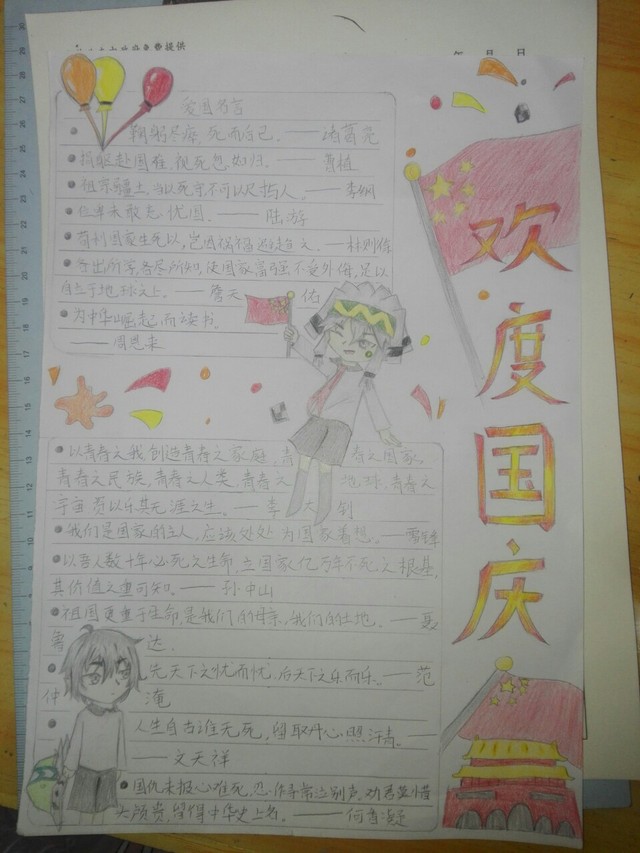 免费提供
年 月 日
欢度国庆
爱国名言
鞠躬尽瘁,死而后已。——诸葛亮
捐躯赴国难,视死忽如归。——曹植
祖宗疆土,当以死守,不可以尺寸与人。——李纲
位卑未敢忘忧国。——陆游
苟利国家生死以,岂因祸福避趋之。——林则徐
各出所学,各尽所知,使国家富强不受外侮,足以
自立于地球之上。——詹天佑
为中华崛起而读书。
——周恩来
以青春之我,创造青春之家庭,青春之国家,
青春之民族,青春之人类,青春之地球,青春之
宇宙,资以乐其无涯之生。——李大钊
我们是国家的主人,应该处处为国家着想。——雷锋
以吾人数十年必死之生命,立国家亿万年不死之根基,
其价值之重可知。——孙中山
祖国更重于生命,是我们的母亲,我们的土地。——聂
鲁达
先天下之忧而忧,后天下之乐而乐。——范
仲淹
人生自古谁无死,留取丹心照汗青。——
——文天祥
国仇未报心难死,忍作寻常泣别声,劝君莫惜
头颅贵,留得中华史上名。——何香凝